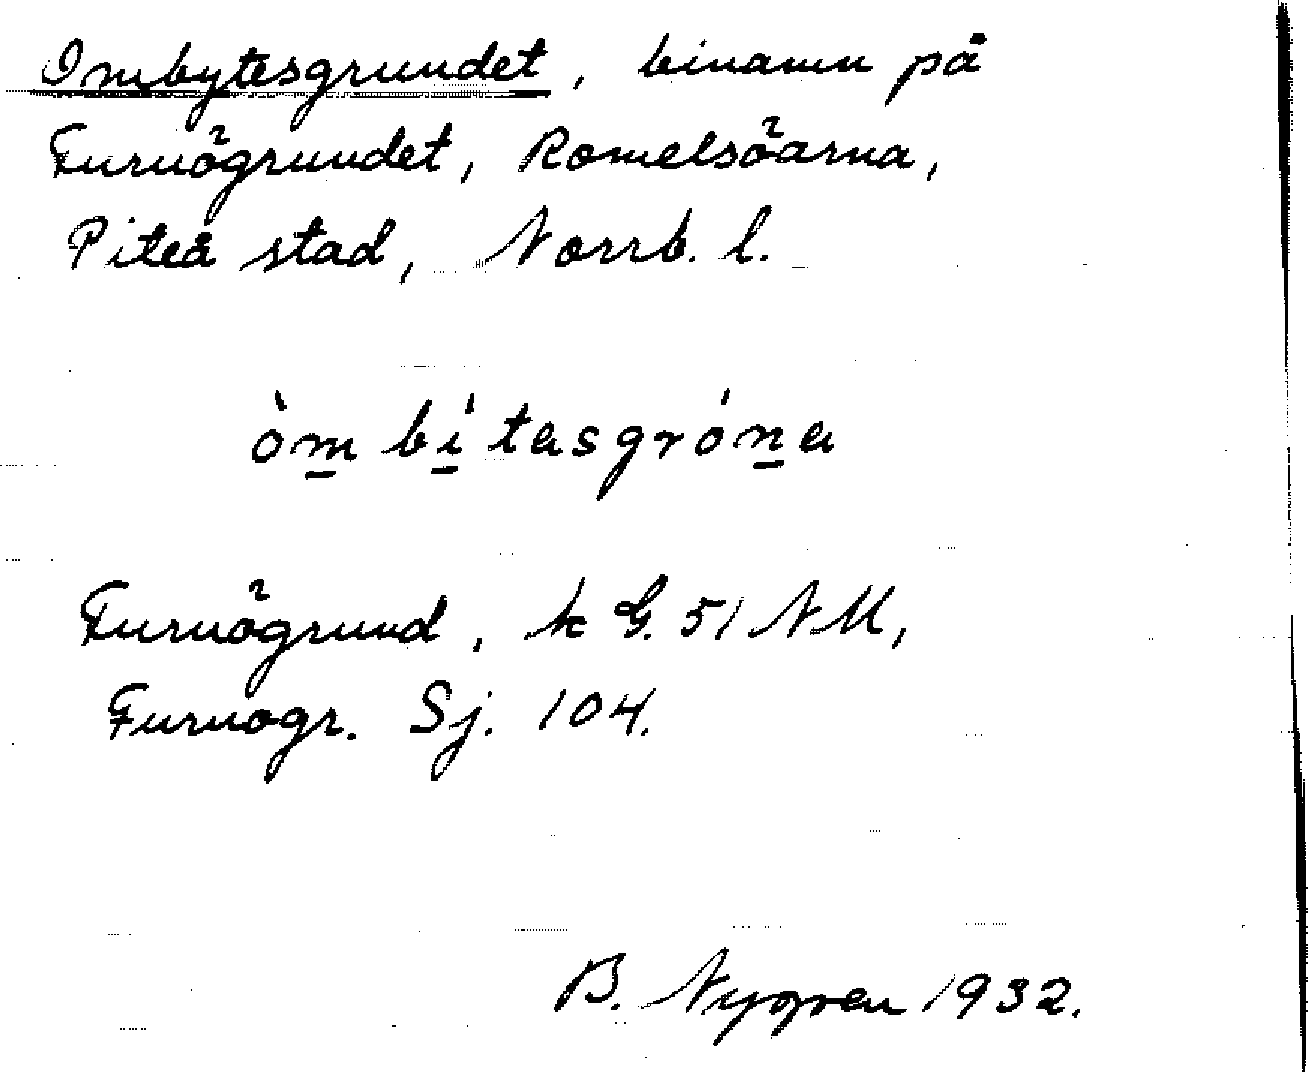 Imbytesgrundet, binamn på
Furuögrundet, Romelsöarna,
Piteå stad, Norrb. l.
òm bí tasgróna
Furuögrund, k G. 51 NM,
Furuogr. Sj. 104.
B. Nygren 1932.